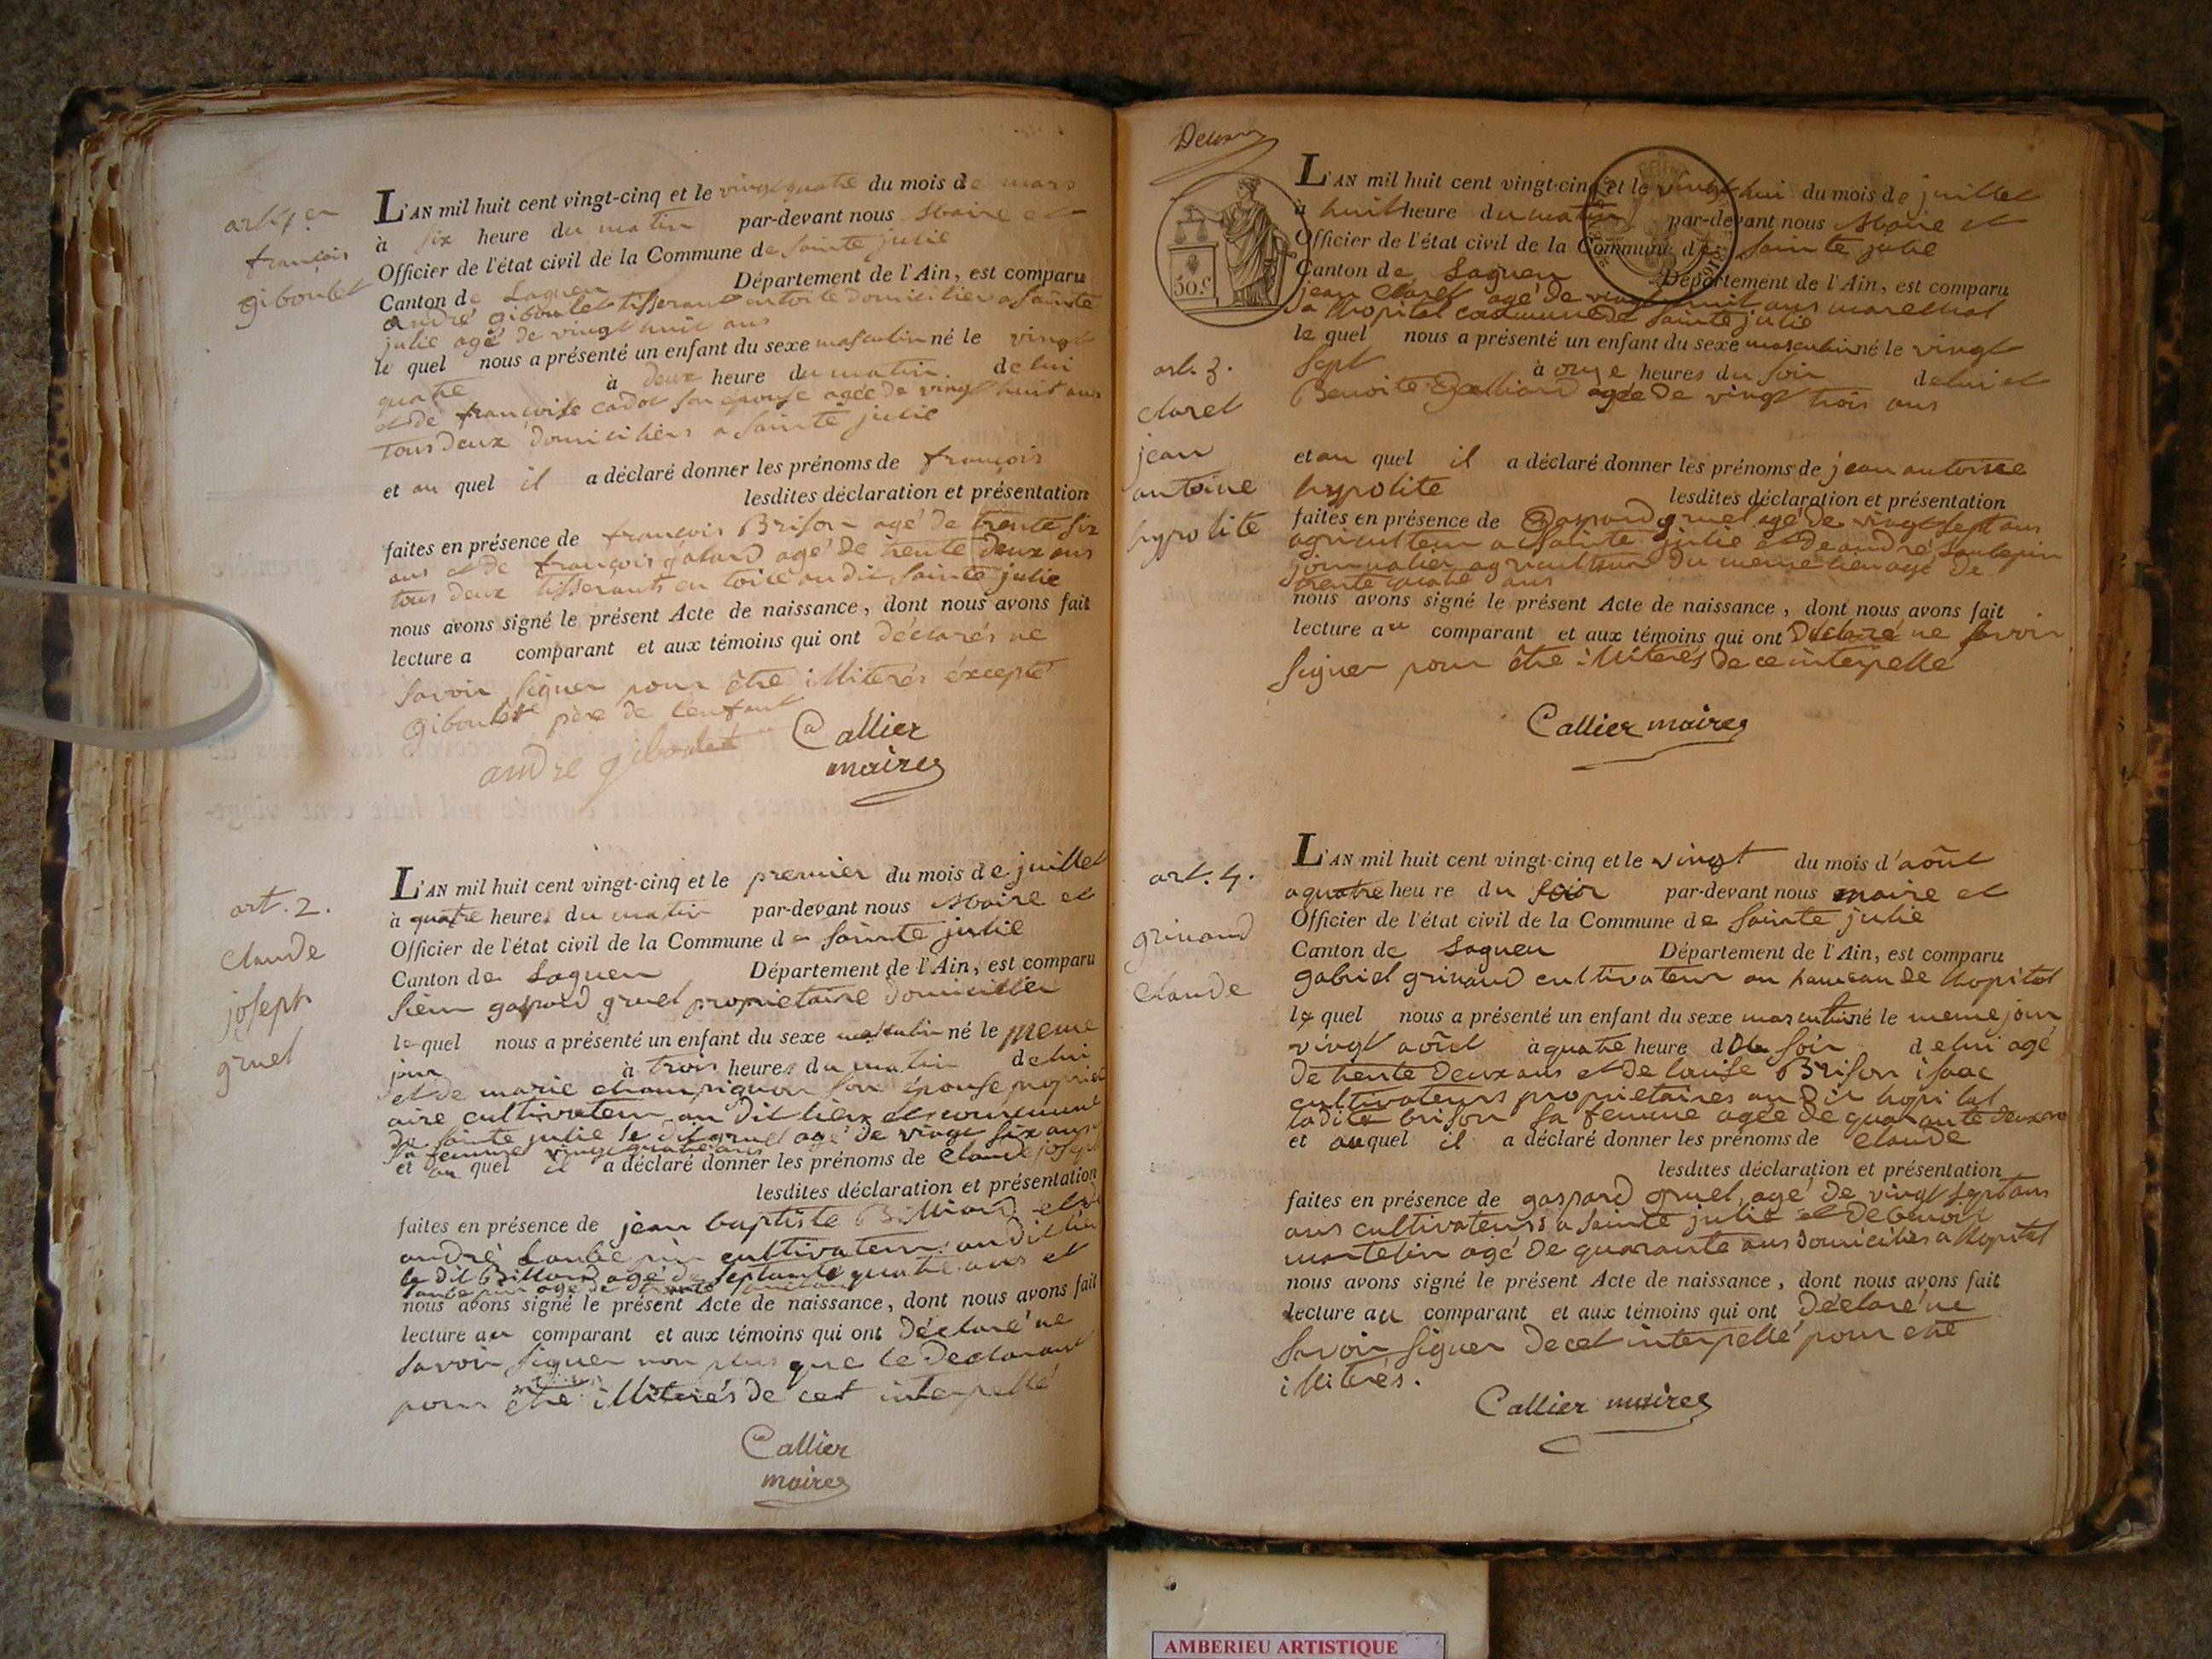 art. 1er
françois
giboulet
L'AN mil huit cent vingt-cinq et le vingt quatre du mois de mars
à six heure du matin par-devant nous Maire et
Officier de l'état civil de la Commune de Sainte julie
Canton de Lagneu Département de l'Ain, est comparu
andré giboulet tisserant en toile domicilier a Sainte
julie agé de vingt huit ans
le quel nous a présenté un enfant du sexe masculin né le vingt
quatre à deux heure du matin. de lui
et de françoise cadot son epouse agée de vingt huit ans
tous deux domiciliers a Sainte julie
et au quel il a déclaré donner les prénoms de françois
lesdites déclaration et présentation
faites en présence de françois Brison agé de trente six
ans et de françois galand agé de trente deux ans
tous deux tisserants en toile au dit Sainte julie
nous avons signé le présent Acte de naissance, dont nous avons fait
lecture a comparant et aux témoins qui ont déclarés ne
savoir signer pour être illiterés éxcepté
giboulet père de l'enfant
andre giboulet Callier
maire
art. 2.
claude
joseph
gruel
L'AN mil huit cent vingt-cinq et le premier du mois de juillet
à quatre heures du matin par-devant nous Maire et
Officier de l'état civil de la Commune de Sainte julie
Canton de Lagneu Département de l'Ain, est comparu
Sieur gaspard gruel proprietaire domicilier
le quel nous a présenté un enfant du sexe masculin né le meme
jour à trois heures du matin de lui
et de marie champignon son épouse propriet
aire cultivateur au dit lieu et commune
de Sainte julie le dit gruel agé de vingt six ans
sa femme vingt quatre ans
et au quel il a déclaré donner les prénoms de claude joseph
lesdites déclaration et présentation
faites en présence de jean baptiste Billiard et
andré Laubepin cultivateur au dit lieu
le dit Billiard agé de septante quatre ans et
laubepin agé de trente
nous avons signé le présent Acte de naissance, dont nous avons fait
lecture au comparant et aux témoins qui ont déclaré ne
savoir signer non plus que le declarant
pour être illiterés de cet interpellé
Callier
maire
30.c
art. 3.
claret
jean
antoine
hypolite
L'AN mil huit cent vingt-cinq et le vingt hui du mois de juillet
à huit heure du matin par-devant nous Maire et
Officier de l'état civil de la Commune de Sainte julie
Canton de Lagneu Département de l'Ain, est comparu
jean claret agé de vingt huit ans marechal
a lhopital commune de Sainte julie
le quel nous a présenté un enfant du sexe masculin né le vingt
sept à onze heures du soir de lui et
Benoite Billiard agée de vingt trois ans
et au quel il a déclaré donner les prénoms de jean antoine
hypolite lesdites déclaration et présentation
faites en présence de gaspard gruel agé de vingt sept ans
agriculteur a Sainte julie et de andré Laubepin
journalier agriculteur du meme lieu agé de
trente quatre ans
nous avons signé le présent Acte de naissance, dont nous avons fait
lecture au comparant et aux témoins qui ont déclaré ne savoir
signer pour être illiterés de ce interpellé
Callier maire
art. 4.
grinand
claude
L'AN mil huit cent vingt-cinq et le vingt du mois d'août
a quatre heure du soir par-devant nous maire et
Officier de l'état civil de la Commune de Sainte julie
Canton de Lagneu Département de l'Ain, est comparu
gabriel grinand cultivateur au hameau de lhopital
le quel nous a présenté un enfant du sexe masculin né le meme jour
vingt août à quatre heure du soir de lui agé
de trente deux ans et de louise Brison isaac
cultivateurs proprietaires au dit hopital
ladite brison sa femme agée de quarante deux ans
et auquel il a déclaré donner les prénoms de claude
lesdites déclaration et présentation
faites en présence de gaspard gruel, agé de vingt sept ans
ans cultivateurs a Sainte julie et de benoit
martelin agé de quarante ans domiciliés a lhopital
nous avons signé le présent Acte de naissance, dont nous avons fait
lecture au comparant et aux témoins qui ont déclaré ne
savoir signer de cet interpellé pour etre
illiterés.
Callier maire
AMBERIEU ARTISTIQUE